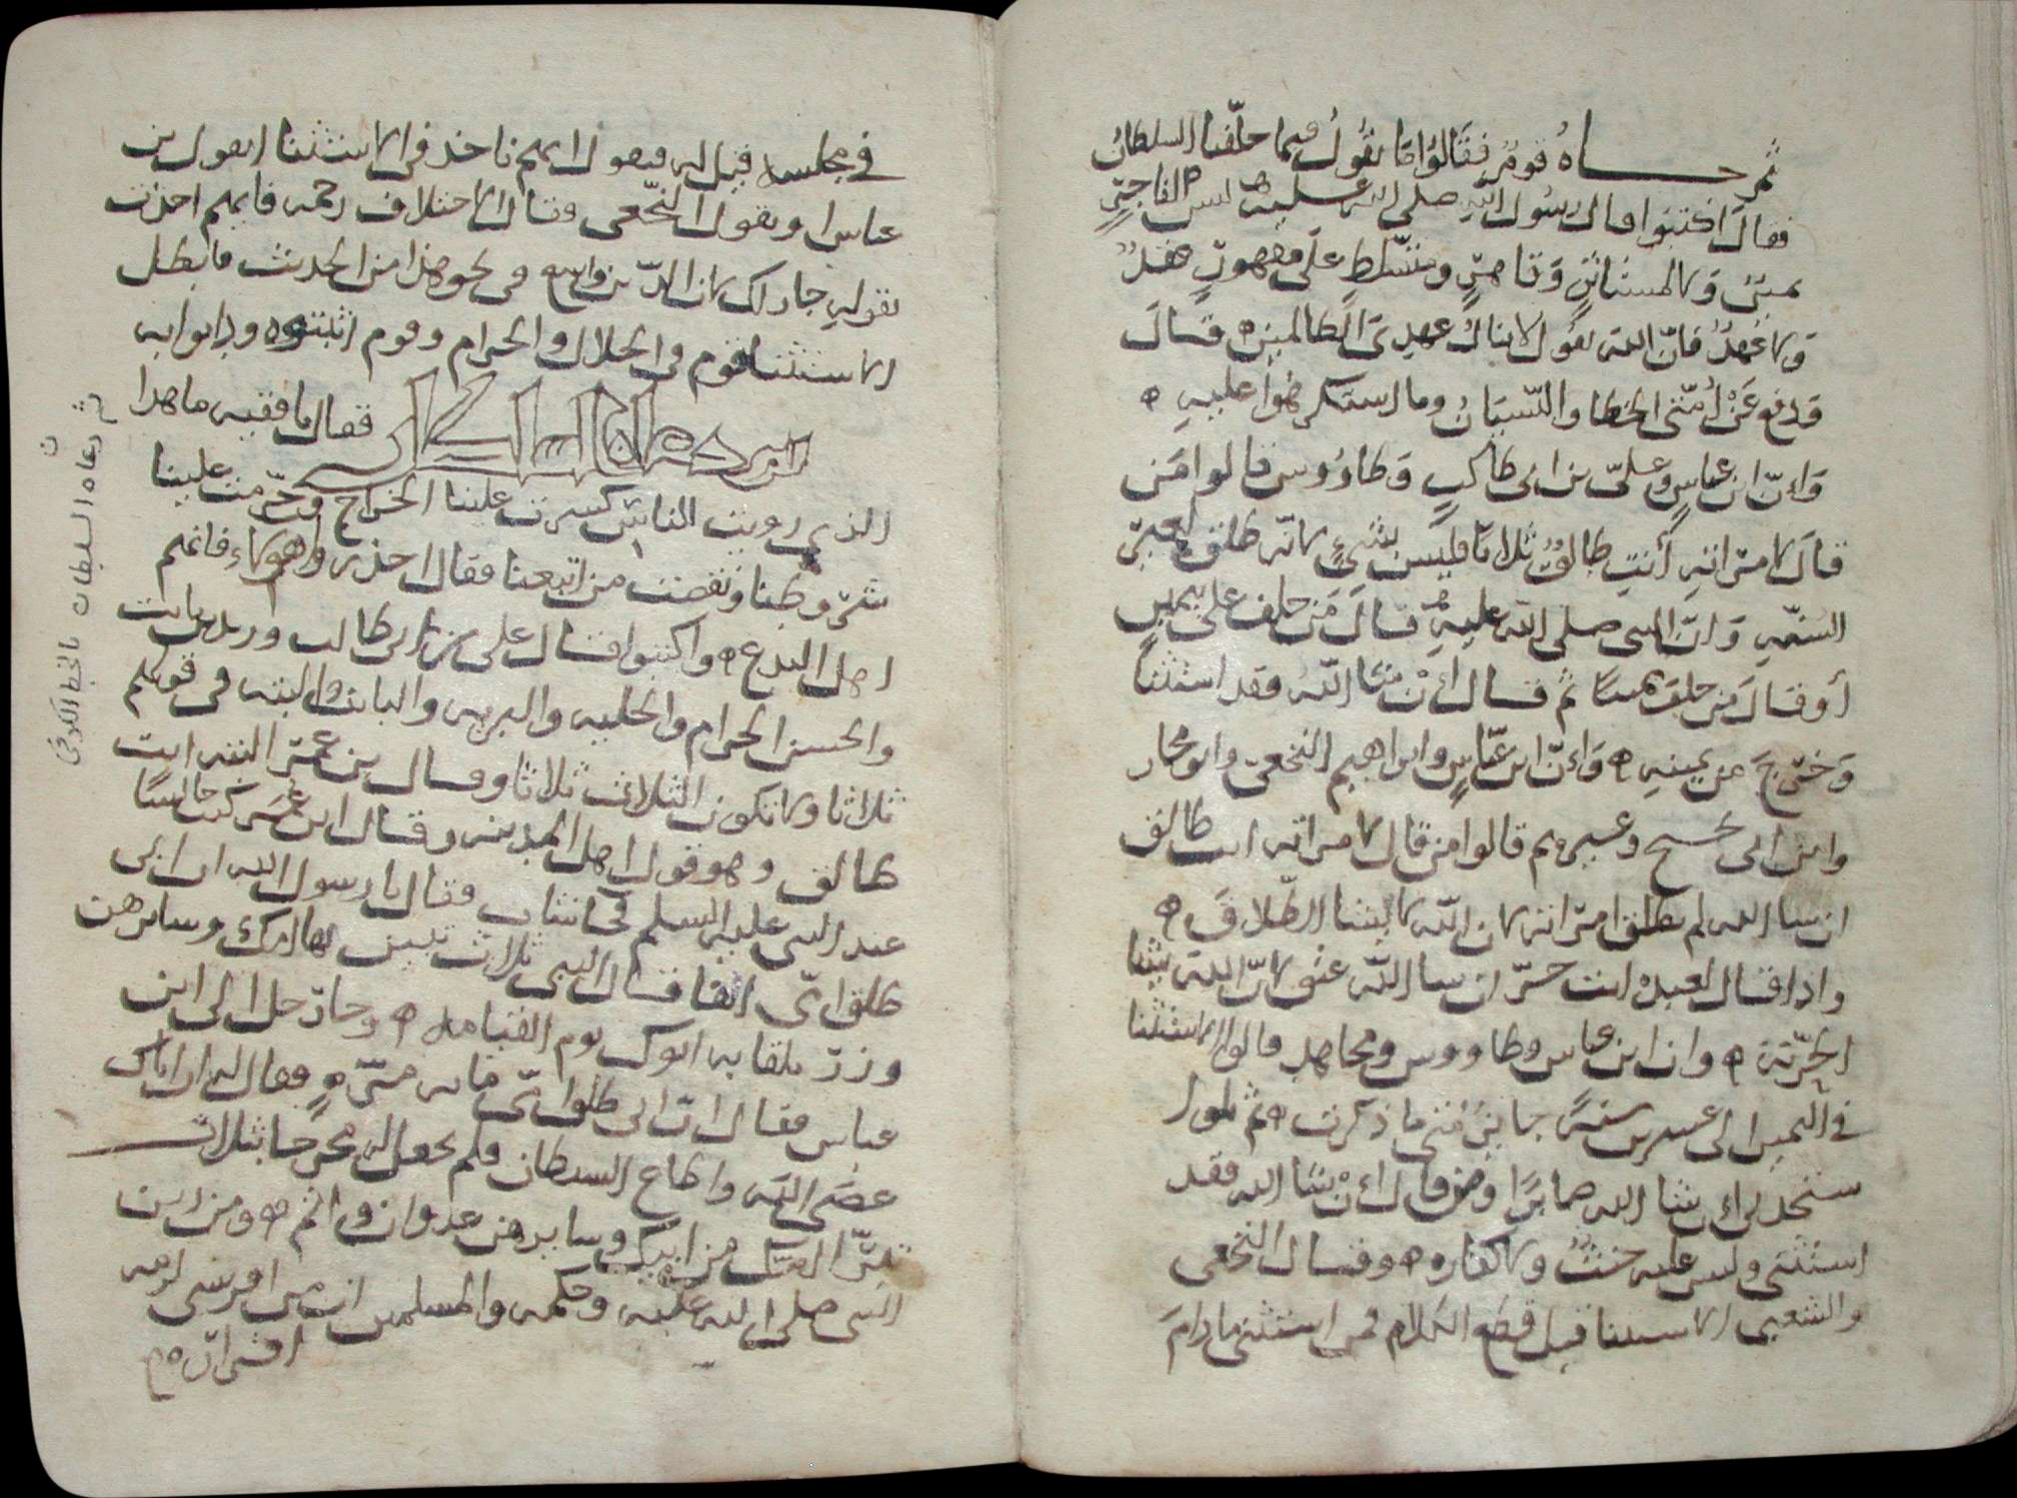 ثم جاه قوم فقالوا ما تقول فيما حلفنا السلطان
فقال اكتبوا قال رسول الله صلى الله عليه ليس الفاجر
يمين ولا لمستاثر وقاهر ومتسلط على مقهور عقد
ولا عهد فان الله يقول لا ينال عهدى الظالمين ه قال
قد رفع عن أمتى الخطا والنسيان وما استكرهوا عليه ه
وإن ابن عباس وعلى بن ابى طالب وطاووس قالوا من
قال لامراته أنت طالق ثلاثا فليس بشىء لانه طلق لغير
السنه وان النبى صلى الله عليه قال من حلف على يمين
أو قال من حلف يمينا ثم قال إن شا الله فقد استثنا
وخرج من يمينه ه وإن ابن عباس وابراهيم النخعى وابو مجلز
وابن ابى نجيح وغيرهم قالوا من قال لامراته انت طالق
ان شا الله لم يطلق امراته لان الله لا يشا الطلاق ه
واذا قال لعبده انت حر ان شا الله عتق لان الله يشا
الحرية ه وان ابن عباس وطاووس ومجاهد قالوا الاستثنا
فى اليمين الى عشرين سنة جايز متى ما ذكرت ه ثم تلوا
ستجدنى إن شا الله صابرا ومن قال إن شا الله فقد
استثنى وليس عليه حنث ولا كفاره ه وقال النخعى
والشعبى الاستثنا قبل قطع الكلام فمن استثنى ما دام
فى مجلسه قيل له فبقول ايهم ناخذ فى الاستثنا ابقول بن
عباس او بقول النخعى وقال الاختلاف رحمه فايهم اخذت
بقوله جاز لك لان الدين واسع فى نحو هذا من الحديث فابطل
الاستثنا قوم فى الحلال والحرام وقوم اثبتوه ودانوا به
فقال يا فقيه ما هذا
الذى رويت للناس كسرت علينا الخراج وحرمت علينا
شروطنا ونقضت من اتبعنا فقال احذر واهولاء فانهم
اهل البدع ه واكتبوا قال على بن ابى طالب وزيد بن ثابت
والحسن الحرام والخليه والبريه والباين والبته فى قولهم
ثلاثا ثلاثا ولا تكون الثلاث ثلاثا وقال بن عمر البته انت
طالق وهو قول اهل المدينه وقال ابن عمر كنت جالسا
عند النبى عليه السلم فجا شاب فقال يا رسول الله ان ابى
طلق امى الفا فقال النبى ثلاث تبين بها امك وسايرهن
وزر يلقا به ابوك يوم القيامه ه وجا رجل الى ابن
عباس فقال ان ابى طلق امى مايه مره فقال له ان اباك
عصى الله واطاع الشيطان فلم يجعل له مخرجا بثلاث
تبين امك من ابيك وسايرهن عدوان واثم ه ومن دين
النبى صلى الله عليه وحكمه والمسلمين
ثم دعاه السلطان
بالخط الكوفى